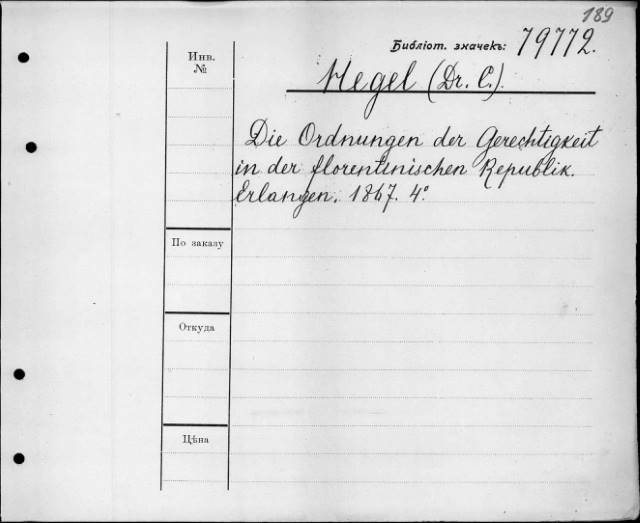 189
Библіот. значекъ: 79772.
Инв.
№
Hegel (Dr. C.).
Die Ordnungen der Gerechtigkeit
in der florentinischen Republik.
Erlangen. 1867. 4°
По заказу
Откуда
Цѣна